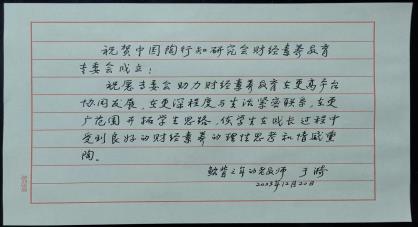 祝贺中国陶行知研究会财经素养教育
专委会成立！
祝愿专委会助力财经素养教育在更高平台
协同发展，在更深程度与生活紧密联系，在更
广范围开拓学生思路，使学生在成长过程中
受到良好的财经素养的理性思考和情感熏
陶。
躭背之年的老教师 于漪
2023年12月20日